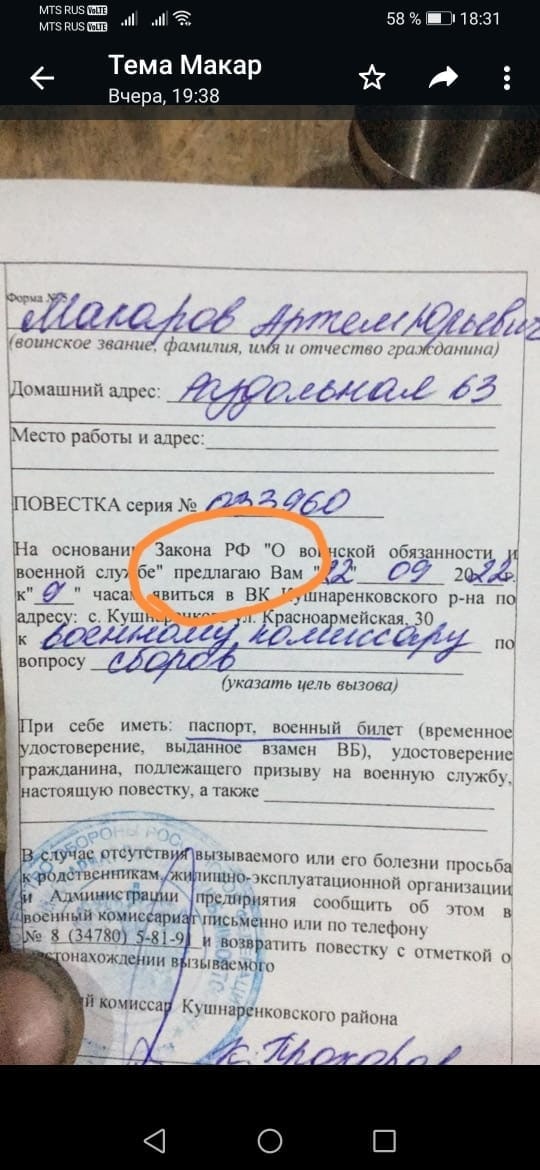 MTS RUS VoLTE
MTS RUS VoLTE
58 % 18:31
Тема Макар
Вчера, 19:38
Форма №
Макаров Артем Юрьевич
(воинское звание, фамилия, имя и отчество гражданина)
Домашний адрес: Раздольная 63
Место работы и адрес:
ПОВЕСТКА серия № 033960
На основании Закона РФ "О воинской обязанности и
военной службе" предлагаю Вам "22" 09 2022г.
к" 9 " часам явиться в ВК Кушнаренковского р-на по
адресу: с. Кушнаренково ул. Красноармейская, 30
к военному комиссару по
вопросу сборов
(указать цель вызова)
При себе иметь: паспорт, военный билет (временное
удостоверение, выданное взамен ВБ), удостоверение
гражданина, подлежащего призыву на военную службу,
настоящую повестку, а также
В случае отсутствия вызываемого или его болезни просьба
к родственникам, жилищно-эксплуатационной организации
и Администрации предприятия сообщить об этом в
военный комиссариат письменно или по телефону
№ 8 (34780) 5-81-91 и возвратить повестку с отметкой о
местонахождении вызываемого
комиссар Кушнаренковского района
К. Прохоров